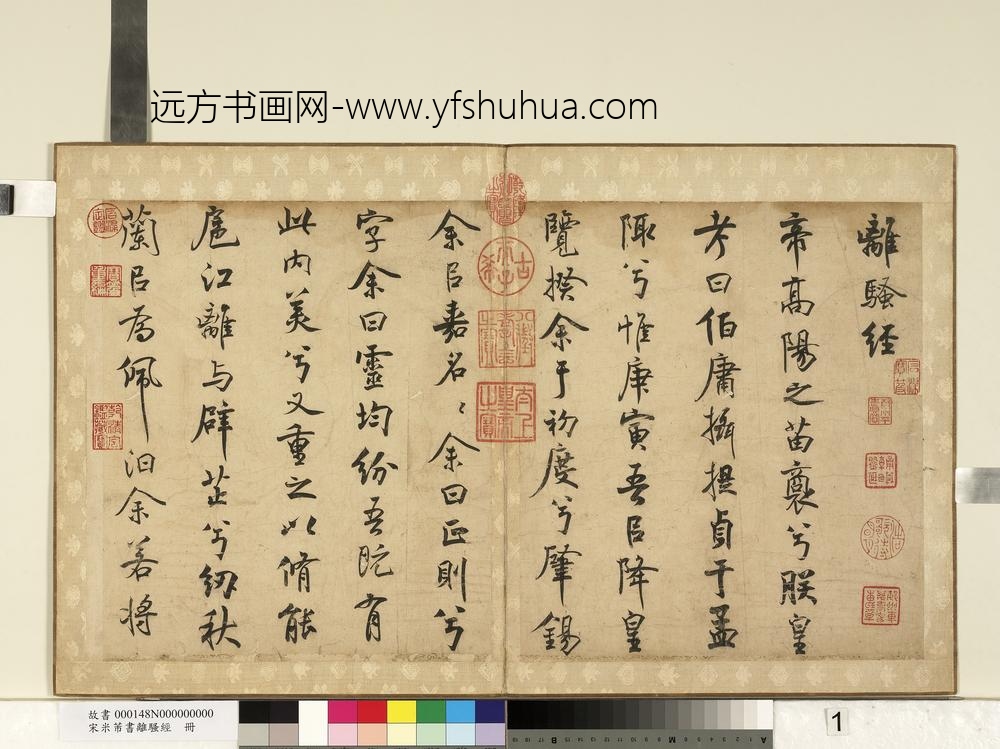 远方书画网-www.yfshuhua.com
離騷經
帝高陽之苗裔兮朕皇
考曰伯庸攝提貞于孟
陬兮惟庚寅吾㠯降皇
覽揆余于初度兮肈錫
余㠯嘉名〻余曰正則兮
字余曰靈均紛吾既有
此內美兮又重之以脩能
扈江離与辟芷兮紉秋
蘭㠯為佩汨余若將
古希天子
八徵耄念之寶
太上皇帝之寶
故書 000148N000000000
宋米芾書離騷經 冊
1